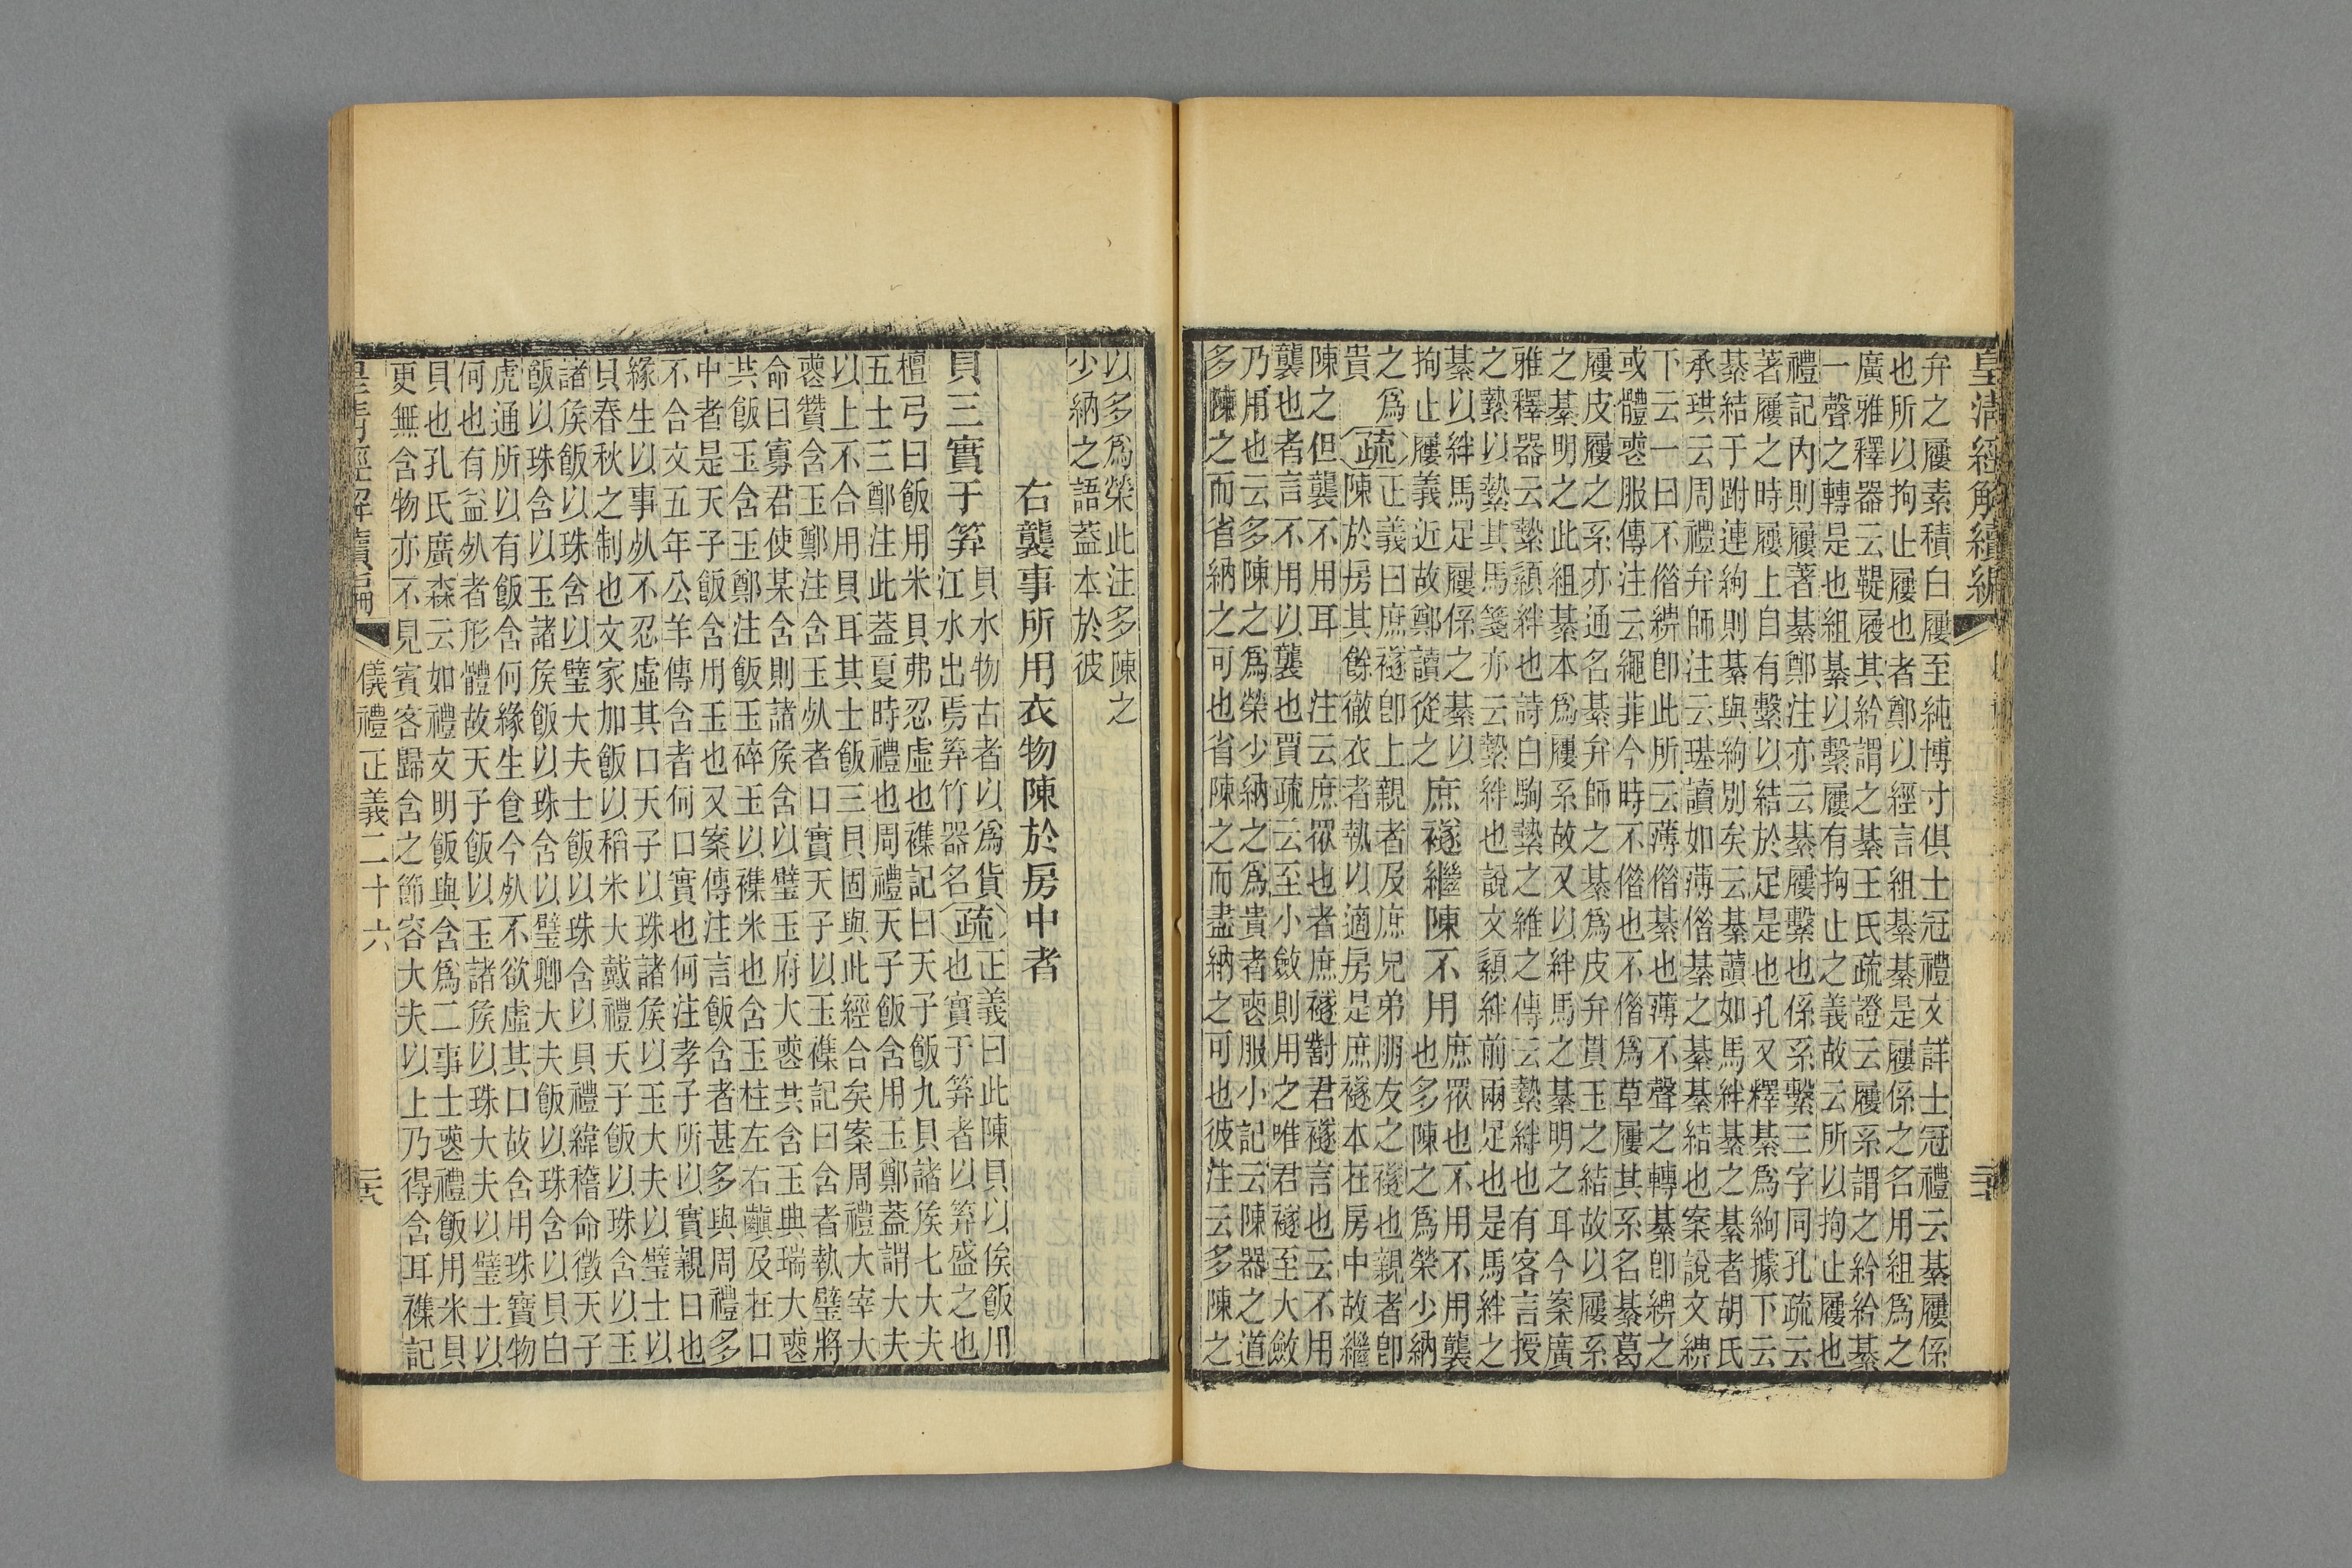 皇清經解續編
弁之屨素積白屨至純博寸俱士冠禮文詳士冠禮云綦屨係
也所以拘止屨也者鄭以經言組綦綦是屨係之名用組爲之
廣雅釋器云鞮屐其紟謂之綦王氏疏證云屨系謂之紟紟綦
一聲之轉是也組綦以繫屨有拘止之義故云所以拘止屨也
禮記內則屨著綦鄭注亦云綦屨繫也係系繫三字同孔疏云
著屨之時屨上自有繫以結於足是也孔又釋綦爲絇據下云
綦結于跗連絇則綦與絇別矣云綦讀如馬絆綦之綦者胡氏
承珙云周禮弁師注云璂讀如薄借綦之綦綦結也案說文綼
下云一曰不借綼卽此所云薄借綦也薄不聲之轉綦卽綼之
或體喪服傳注云繩菲今時不借也不借爲草屨其系名綦葛
屨皮屨之系亦通名綦弁師之綦爲皮弁貫玉之結故以屨系
之綦明之此組綦本爲屨系故又以絆馬之綦明之耳今案廣
雅釋器云縶顈絆也詩白駒縶之維之傳云縶絆也有客言授
之縶以縶其馬箋亦云縶絆也說文顈絆前兩足也是馬絆之
綦以絆馬足屨係之綦以
拘止屨義近故鄭讀從之
庶襚繼陳不用
庶眾也不用不用襲
也多陳之爲榮少納
之爲
貴
疏
正義曰庶襚卽上親者及庶兄弟朋友之襚也親者卽
陳於房其餘徹衣者執以適房是庶襚本在房中故繼
陳之但襲不用耳 注云庶眾也者庶襚對君襚言也云不用
襲也者言不用以襲也賈疏云至小斂則用之唯君襚至大斂
乃用也云多陳之爲榮少納之爲貴者喪服小記云陳器之道
多陳之而省納之可也省陳之而盡納之可也彼注云多陳之
以多爲榮此注多陳之
少納之語蓋本於彼
右襲事所用衣物陳於房中者
貝三實于笲
貝水物古者以爲貨
江水出焉笲竹器名
疏
正義曰此陳貝以俟飯用
也實于笲者以笲盛之也
檀弓曰飯用米貝弗忍虛也襍記曰天子飯九貝諸侯七大夫
五士三鄭注此蓋夏時禮也周禮天子飯含用玉鄭蓋謂大夫
以上不合用貝耳其士飯三貝固與此經合矣案周禮大宰大
喪贊含玉鄭注含玉死者口實天子以玉襍記曰含者執璧將
命曰寡君使某含則諸侯含以璧玉府大喪共含玉典瑞大喪
共飯玉含玉鄭注飯玉碎玉以襍米也含玉柱左右齻及在口
中者是天子飯含用玉也又案傳注言飯含者甚多與周禮多
不合文五年公羊傳含者何口實也何注孝子所以實親口也
緣生以事死不忍虛其口天子以珠諸侯以玉大夫以璧士以
貝春秋之制也文家加飯以稻米大戴禮天子飯以珠含以玉
諸侯飯以珠含以璧大夫士飯以珠含以貝禮緯稽命徵天子
飯以珠含以玉諸侯飯以珠含以璧卿大夫飯以珠含以貝白
虎通所以有飯含何緣生食今死不欲虛其口故含用珠寶物
何也有益死者形體故天子飯以玉諸侯以珠大夫以璧士以
貝也孔氏廣森云如禮文明飯與含爲二事士喪禮飯用米貝
更無含物亦不見賓客歸含之節容大夫以上乃得含耳襍記
皇清經解續編 儀禮正義二十六